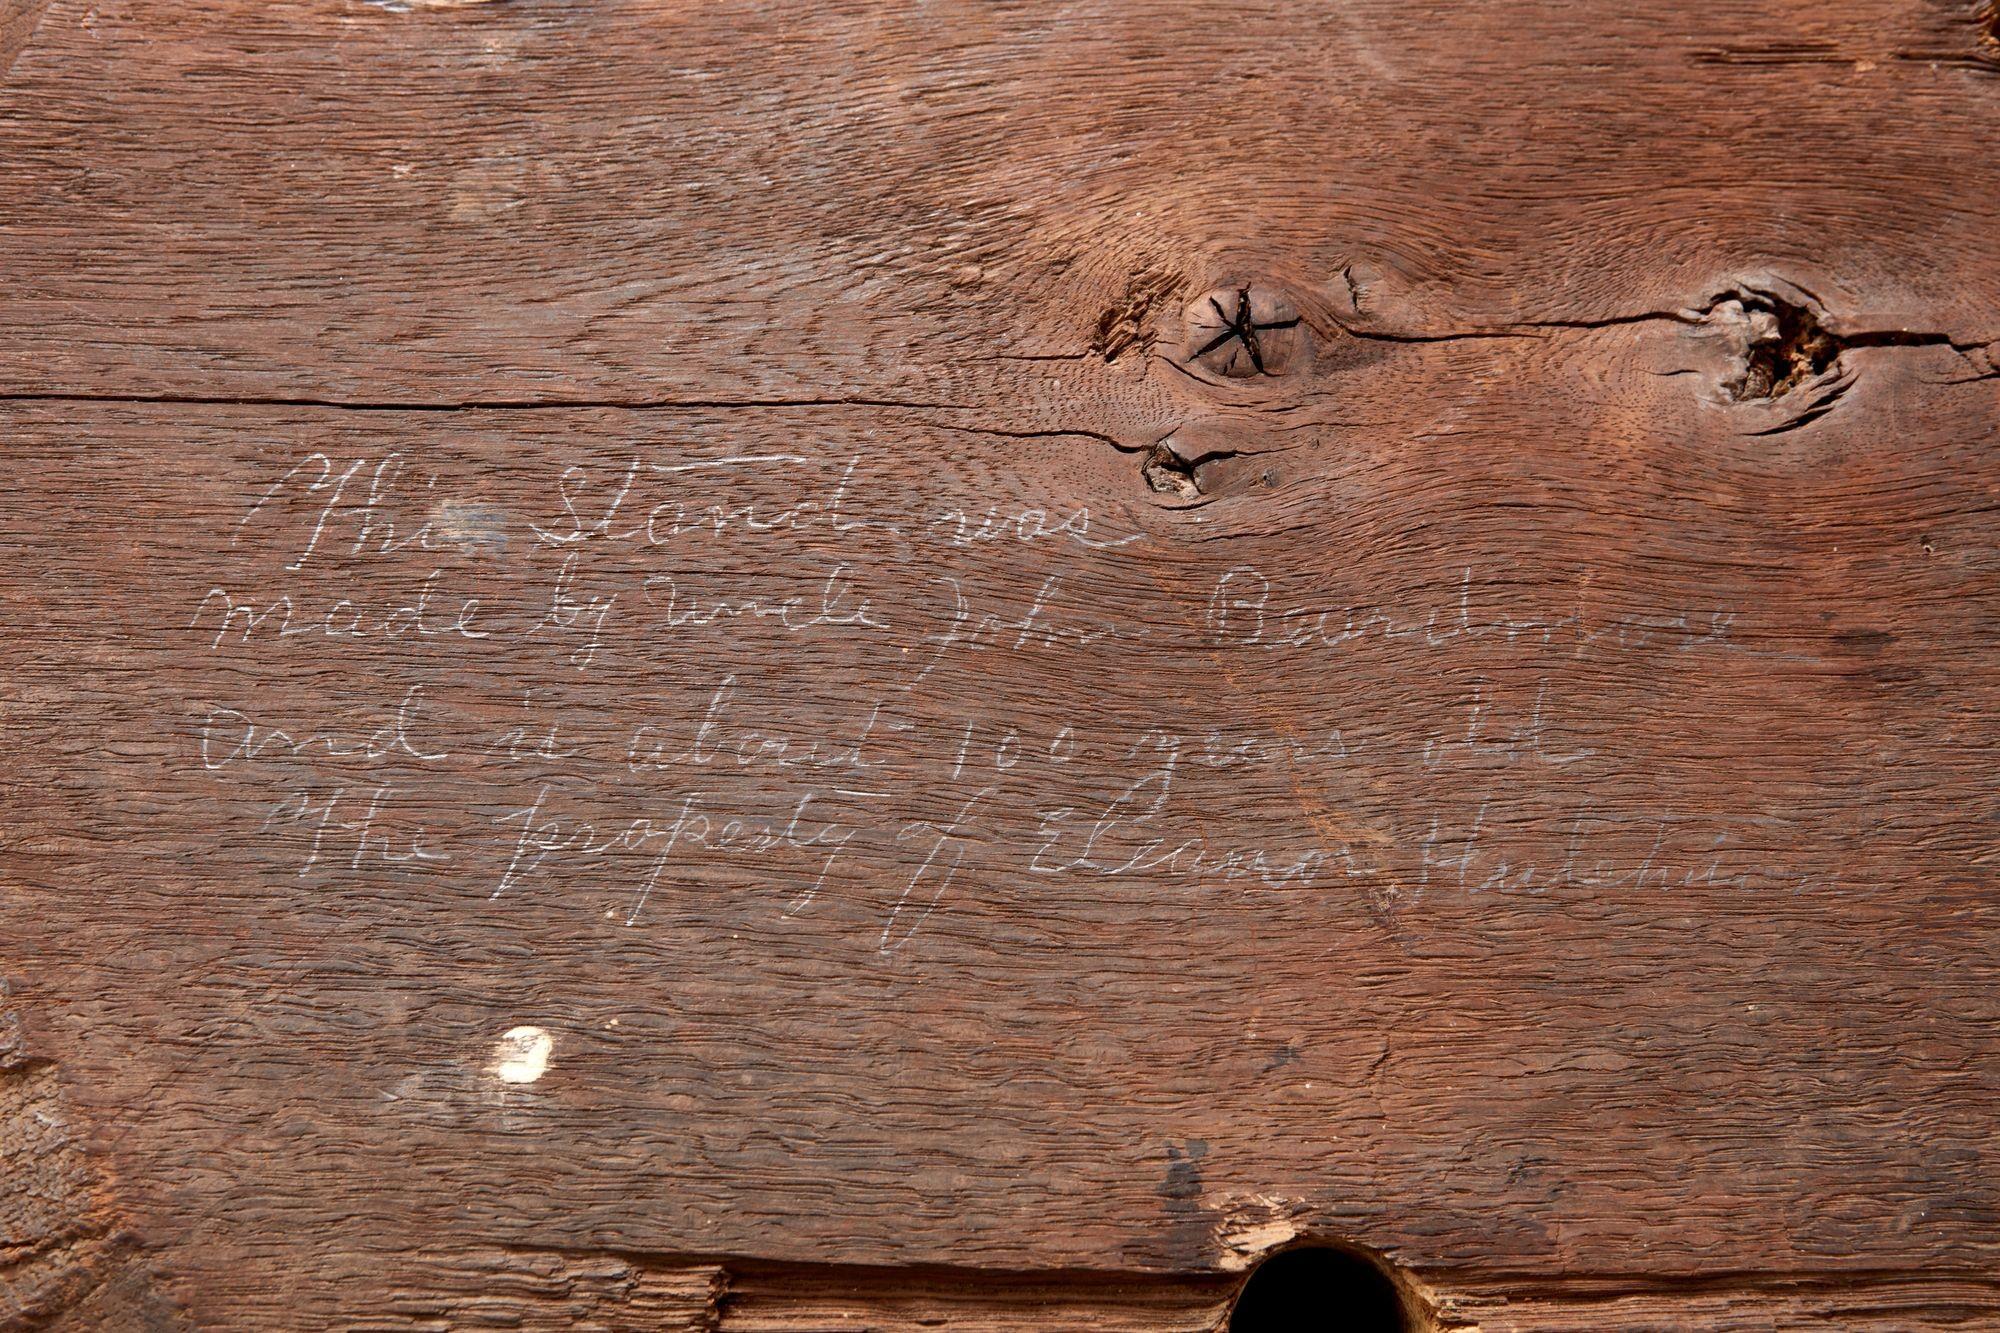 This Stand was
made by Uncle John Beardmore
and is about 100 years old
The property of Eleanor